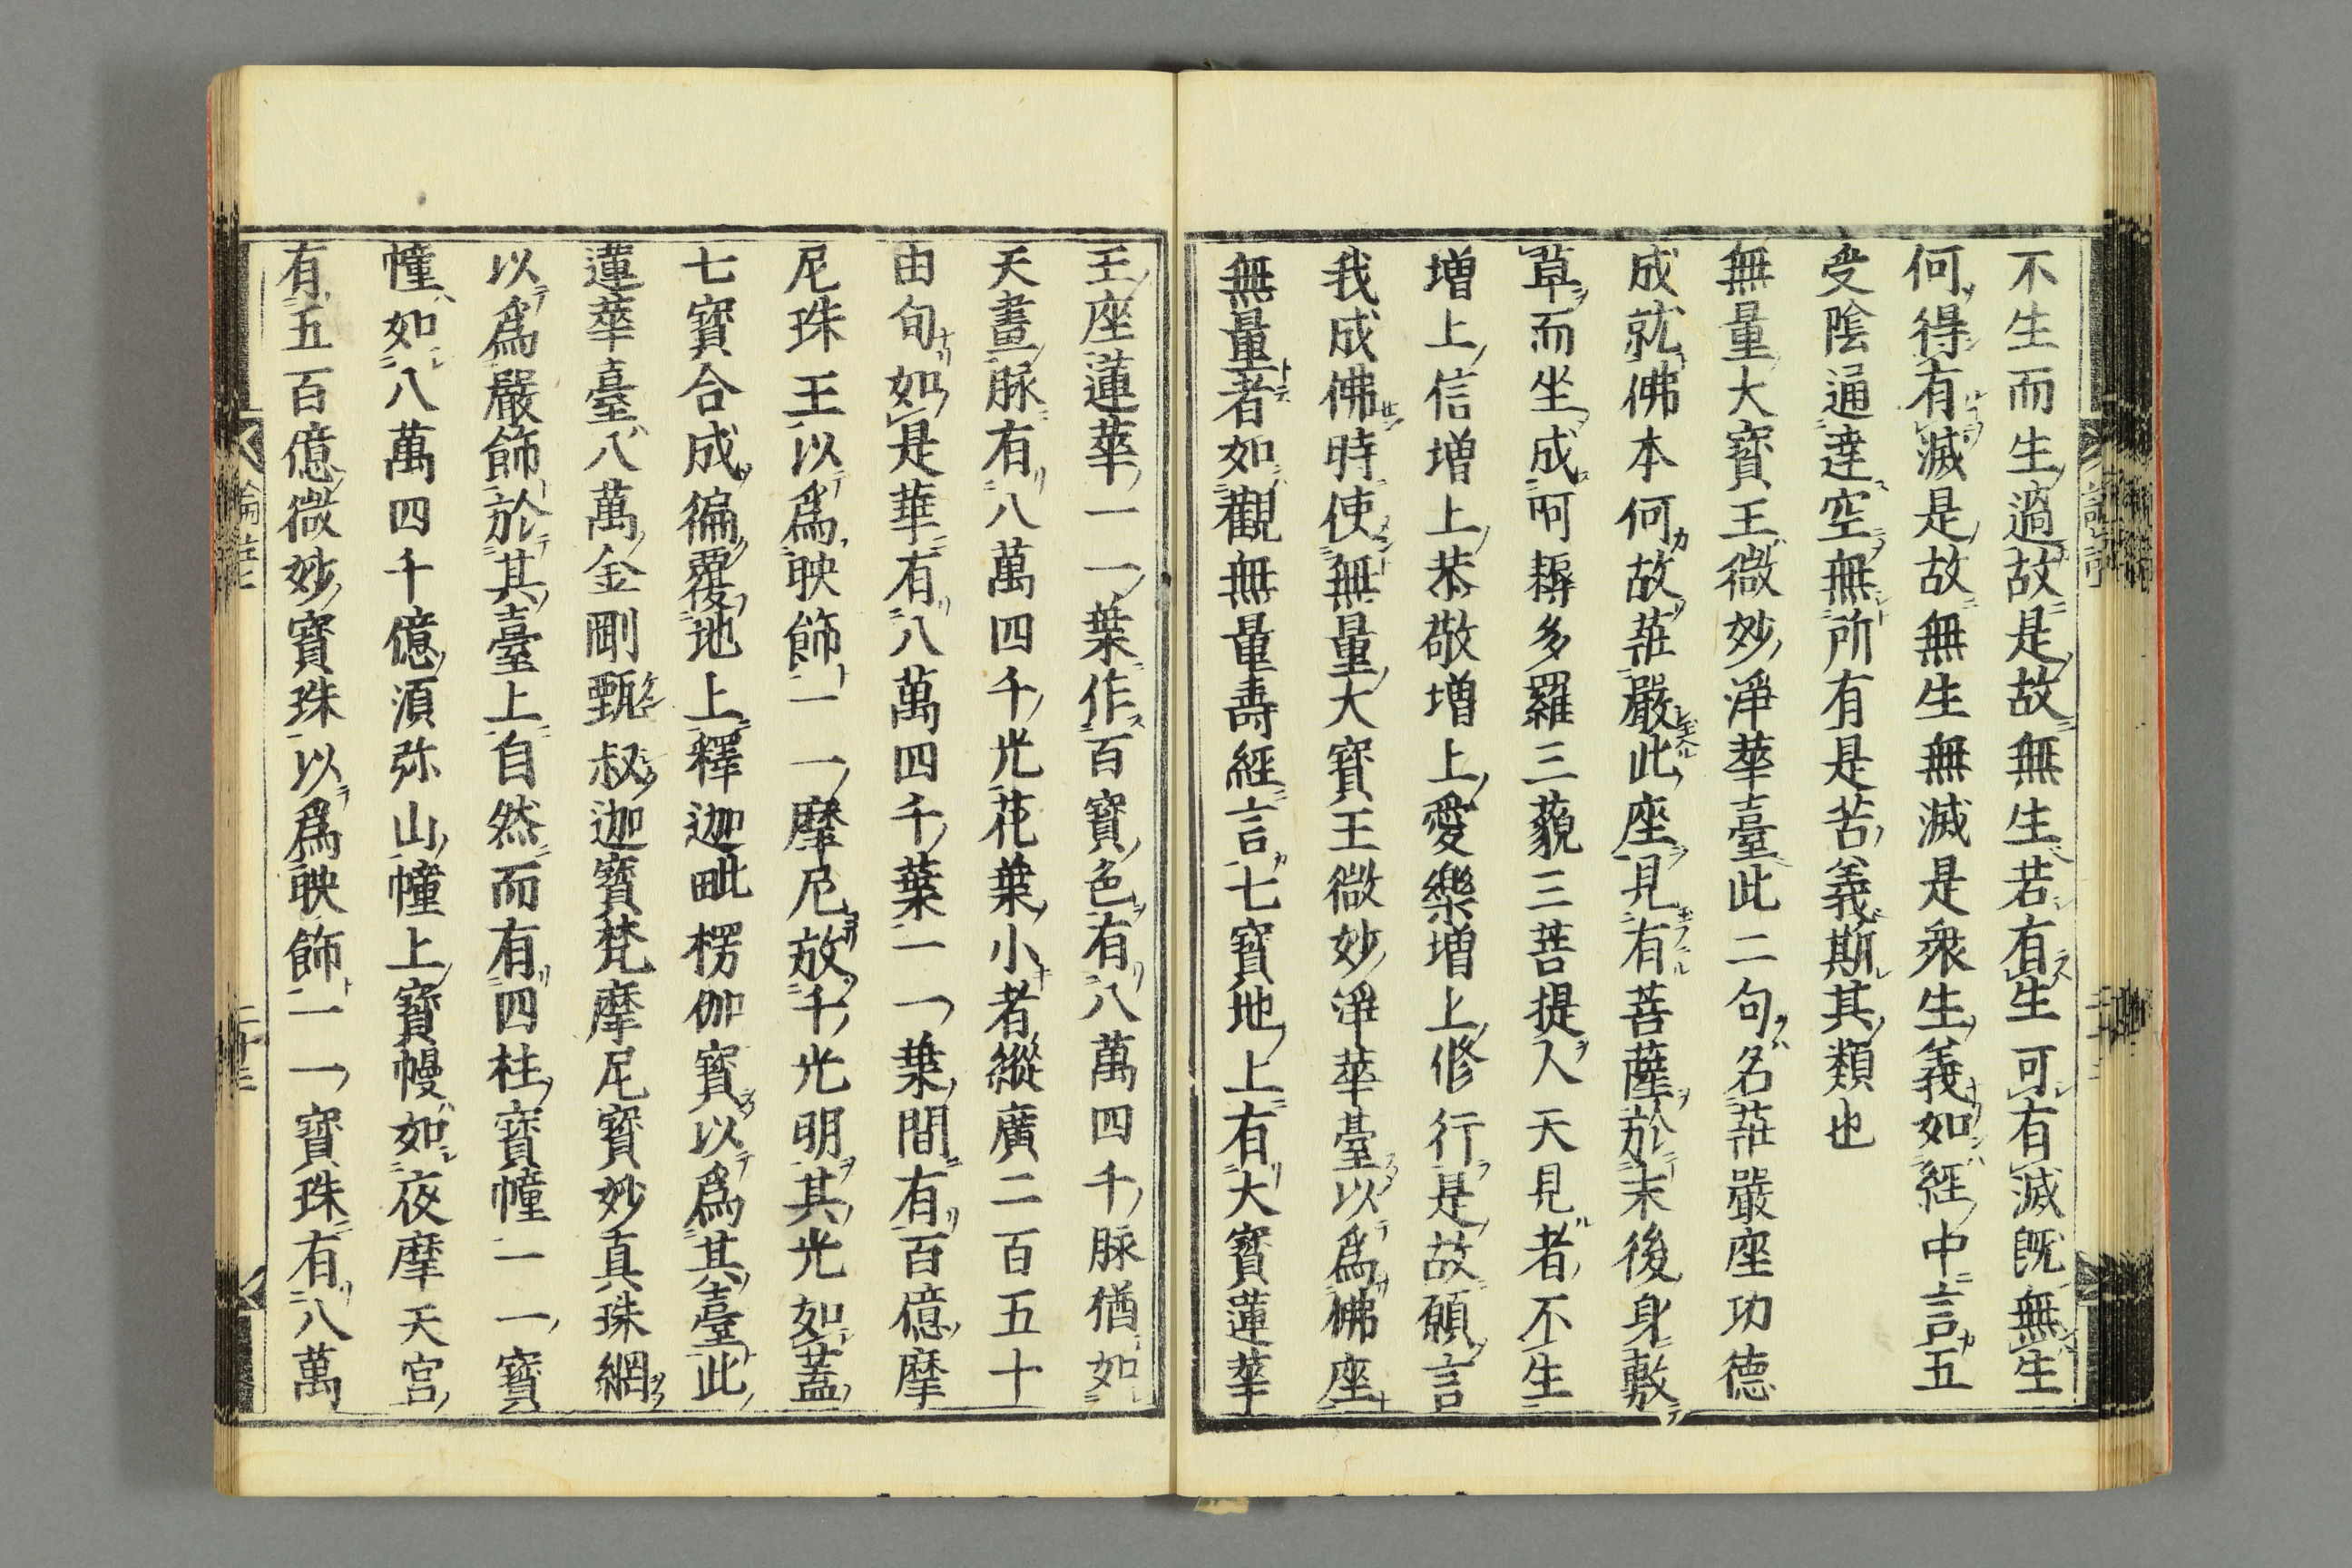 不生而生過故是故無生若有生可有滅既無生
何得有滅是故無生無滅是衆生義如經中言五
受陰通達空無所有是苦義斯其類也
無量大寶王微妙淨華臺此二句名莊嚴座功德
成就佛本何故莊嚴此座見有菩薩於末後身敷
草而坐成阿耨多羅三藐三菩提人天見者不生
増上信増上恭敬増上愛樂増上修行是故願言
我成佛時使無量大寶王微妙淨華臺以爲佛座
無量者如觀無量壽經言七寶地上有大寶蓮華
王座蓮華一一葉作百寶色有八萬四千脉猶如
天畫脉有八萬四千光花葉小者縱廣二百五十
由旬如是華有八萬四千葉一一葉間有百億摩
尼珠王以爲映飾一一摩尼放千光明其光如蓋
七寶合成徧覆地上釋迦毗楞伽寶以爲其臺此
蓮華臺八萬金剛甄叔迦寶梵摩尼寶妙真珠網
以爲嚴飾於其臺上自然而有四柱寶幢一一寶
幢如八萬四千億須弥山幢上寶幔如夜摩天宮
有五百億微妙寶珠以爲映飾一一寶珠有八萬